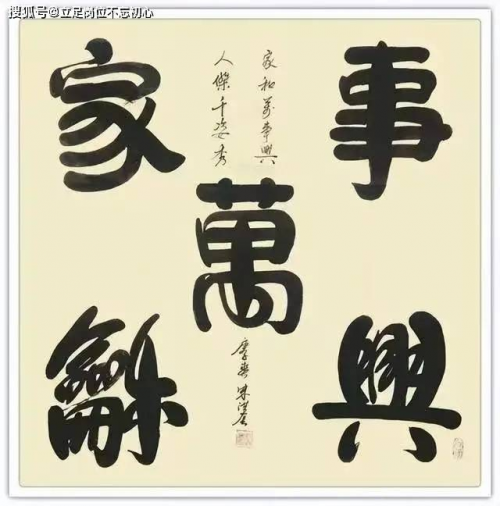 搜狐号@立足岗位不忘初心
家
龢
萬
事
興
家和萬事興
人傑千姿秀